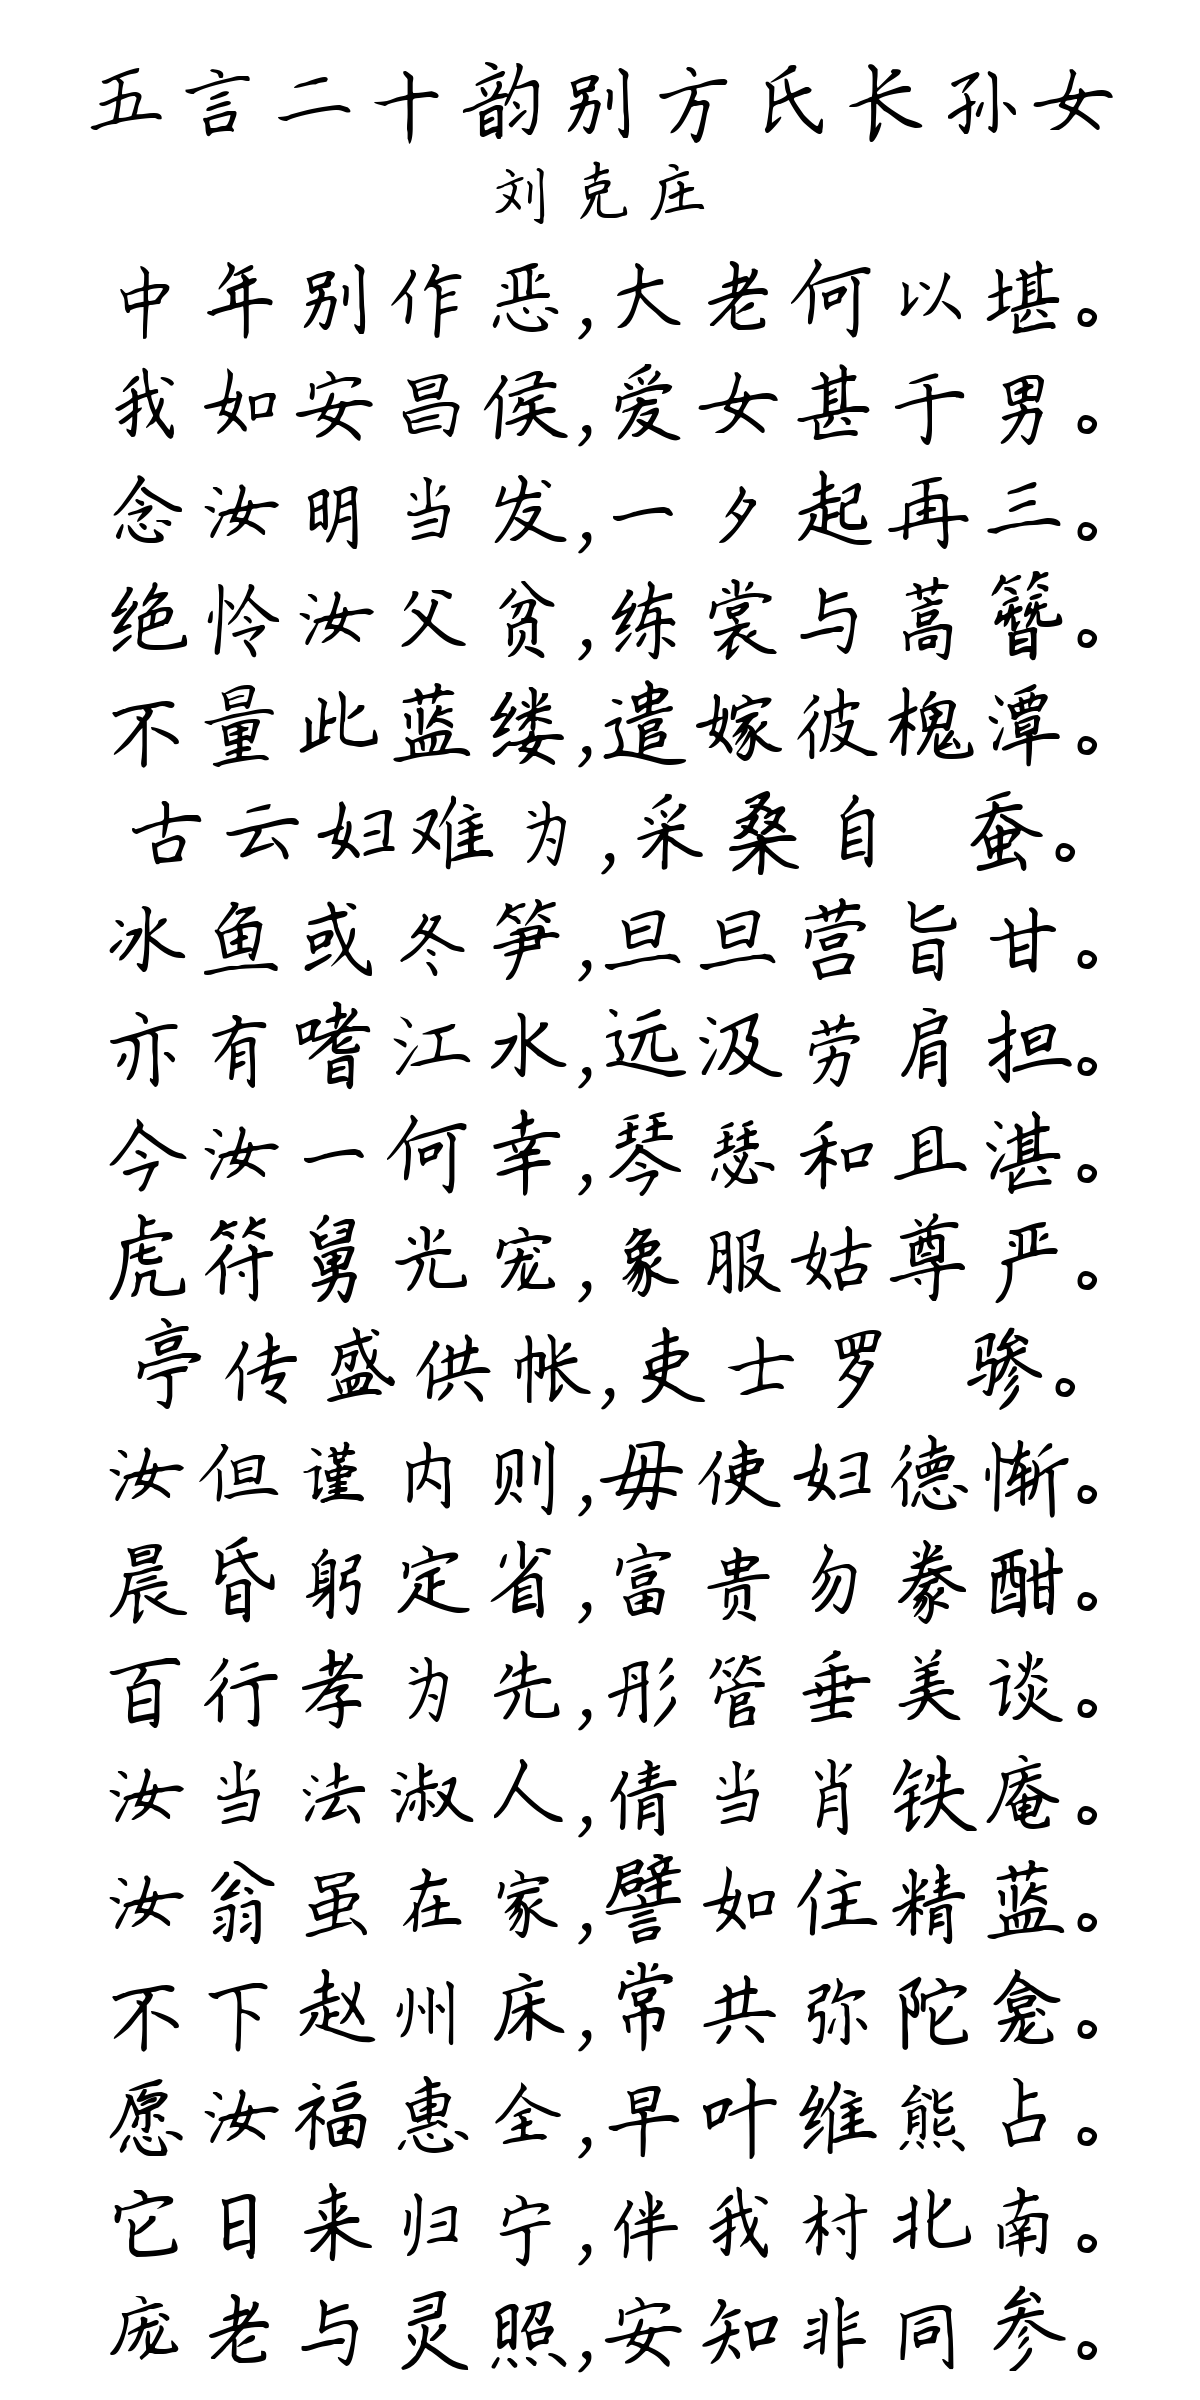 五言二十韵别方氏长孙女
刘克庄
中年别作恶,大老何以堪。
我如安昌侯,爱女甚于男。
念汝明当发,一夕起再三。
绝怜汝父贫,练裳与蒿簪。
不量此蓝缕,遣嫁彼槐潭。
古云妇难为,采桑自 蚕。
冰鱼或冬笋,旦旦营旨甘。
亦有嗜江水,远汲劳肩担。
今汝一何幸,琴瑟和且湛。
虎符舅光宠,象服姑尊严。
亭传盛供帐,吏士罗 骖。
汝但谨内则,毋使妇德惭。
晨昏躬定省,富贵勿豢酣。
百行孝为先,彤管垂美谈。
汝当法淑人,倩当肖铁庵。
汝翁虽在家,譬如住精蓝。
不下赵州床,常共弥陀龛。
愿汝福惠全,早叶维熊占。
它日来归宁,伴我村北南。
庞老与灵照,安知非同参。